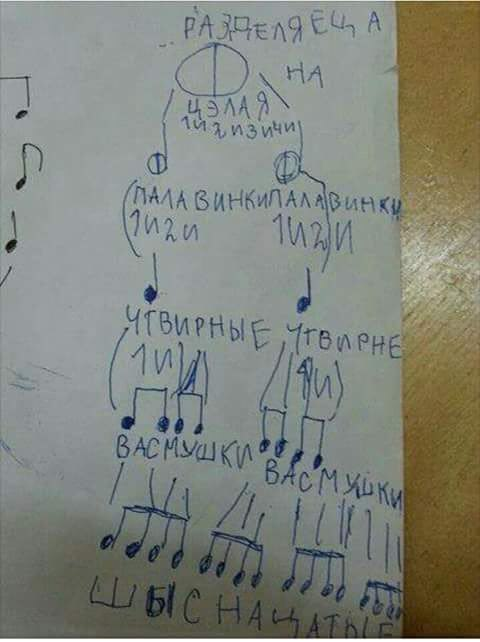 РАЗДЕЛЯЕЩА
НА
ЦЭЛАЯ
1И2ИЗИЧИ
ПАЛАВИНКИ ПАЛАВИНКИ
(1И2И 1И2И)
ЧТВИРНЫЕ ЧТВИРНЕ
(1И) (1И)
ВАСМУШКИ
ВАСМУШКИ
ШЫСНАЦАТЫЕ